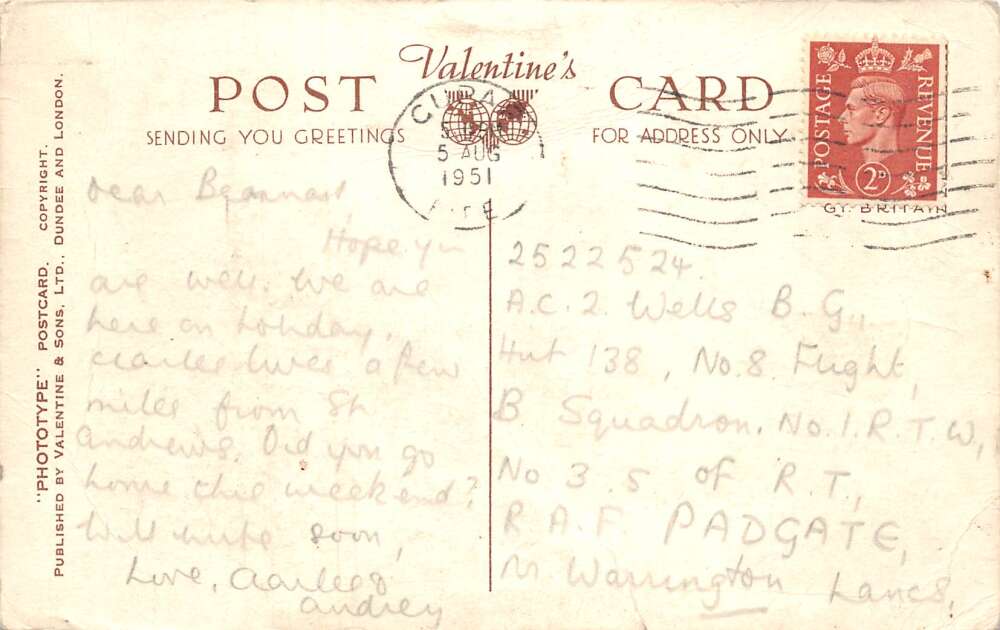 Valentine's
POST CARD
SENDING YOU GREETINGS
FOR ADDRESS ONLY
CUPAR
5 AUG
1951
FIFE
POSTAGE
REVENUE
2D
GT. BRITAIN
"PHOTOTYPE" POSTCARD. COPYRIGHT.
PUBLISHED BY VALENTINE & SONS, LTD., DUNDEE AND LONDON.
Dear
Hope you
are well. We are
here on holiday.
Charles lives a few
miles from St
Andrews. Did you go
home this weekend?
Will write soon,
Love, Charles &
Audrey
2522524.
A.C.2. Wells B.G.,
Hut 138, No.8. Flight,
B Squadron. No.1.R.T.W,
No 3 S of R.T.,
R.A.F PADGATE,
Nr. Warrington Lancs,